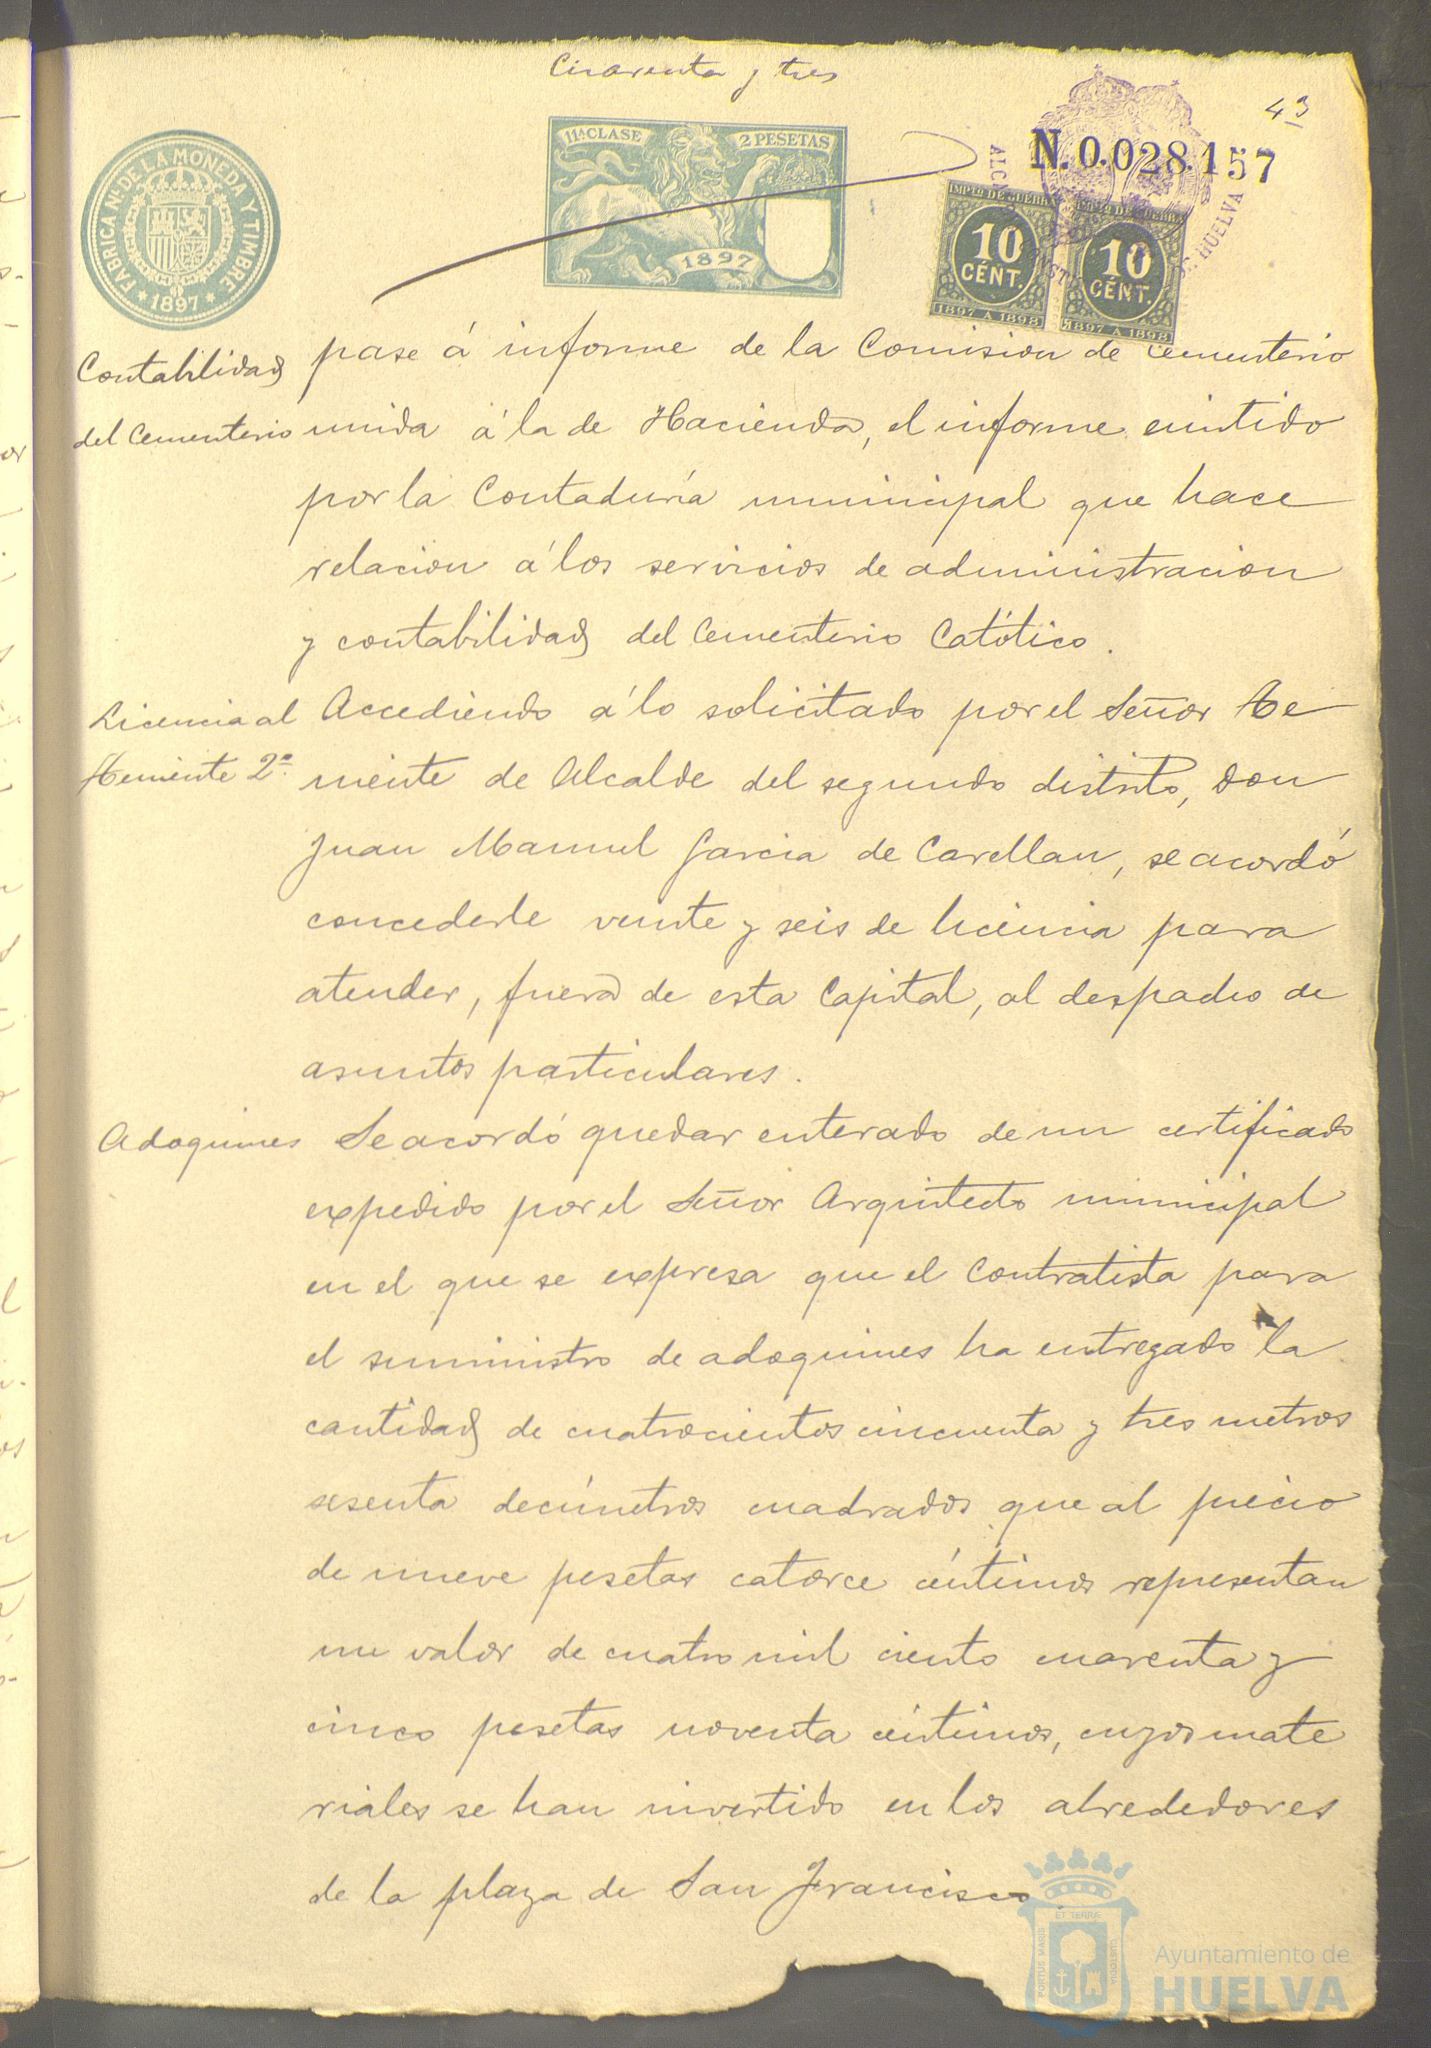 Cuarenta y tres
43
FABRICA Nal. DE LA MONEDA Y TIMBRE
* 1897 *
11ª CLASE 2 PESETAS
1897
N.0.028.157
IMPTO DE GUERRA
10
CÉNT.
1897 A 1898
IMPTO DE GUERRA
10
CÉNT.
1897 A 1898
HUELVA
Contabilidad
del Cementerio
pase á informe de la Comision de Cementerio
unida á la de Hacienda, el informe emitido
por la Contaduría municipal que hace
relacion á los servicios de administracion
y contabilidad del Cementerio Católico.
Licencia al
Teniente 2º.
Accediendo á lo solicitado por el Señor Te
niente de Alcalde del segundo distrito, Don
Juan Manuel Garcia de Carellan, se acordó
concederle veinte y seis de licencia para
atender, fuera de esta Capital, al despacho de
asuntos particulares.
Adoquines
Se acordó quedar enterado de un certificado
expedido por el Señor Arquitecto municipal
en el que se expresa que el Contratista para
el suministro de adoquines ha entregado la
cantidad de cuatrocientos cincuenta y tres metros
sesenta decímetros cuadrados que al precio
de nueve pesetas catorce céntimos representan
un valor de cuatro mil ciento cuarenta y
cinco pesetas noventa céntimos, cuyos mate
riales se han invertido en los alrededores
de la plaza de San Francisco
ET TERRÆ
PORTUS MARIS
CUSTODIA
Ayuntamiento de
HUELVA